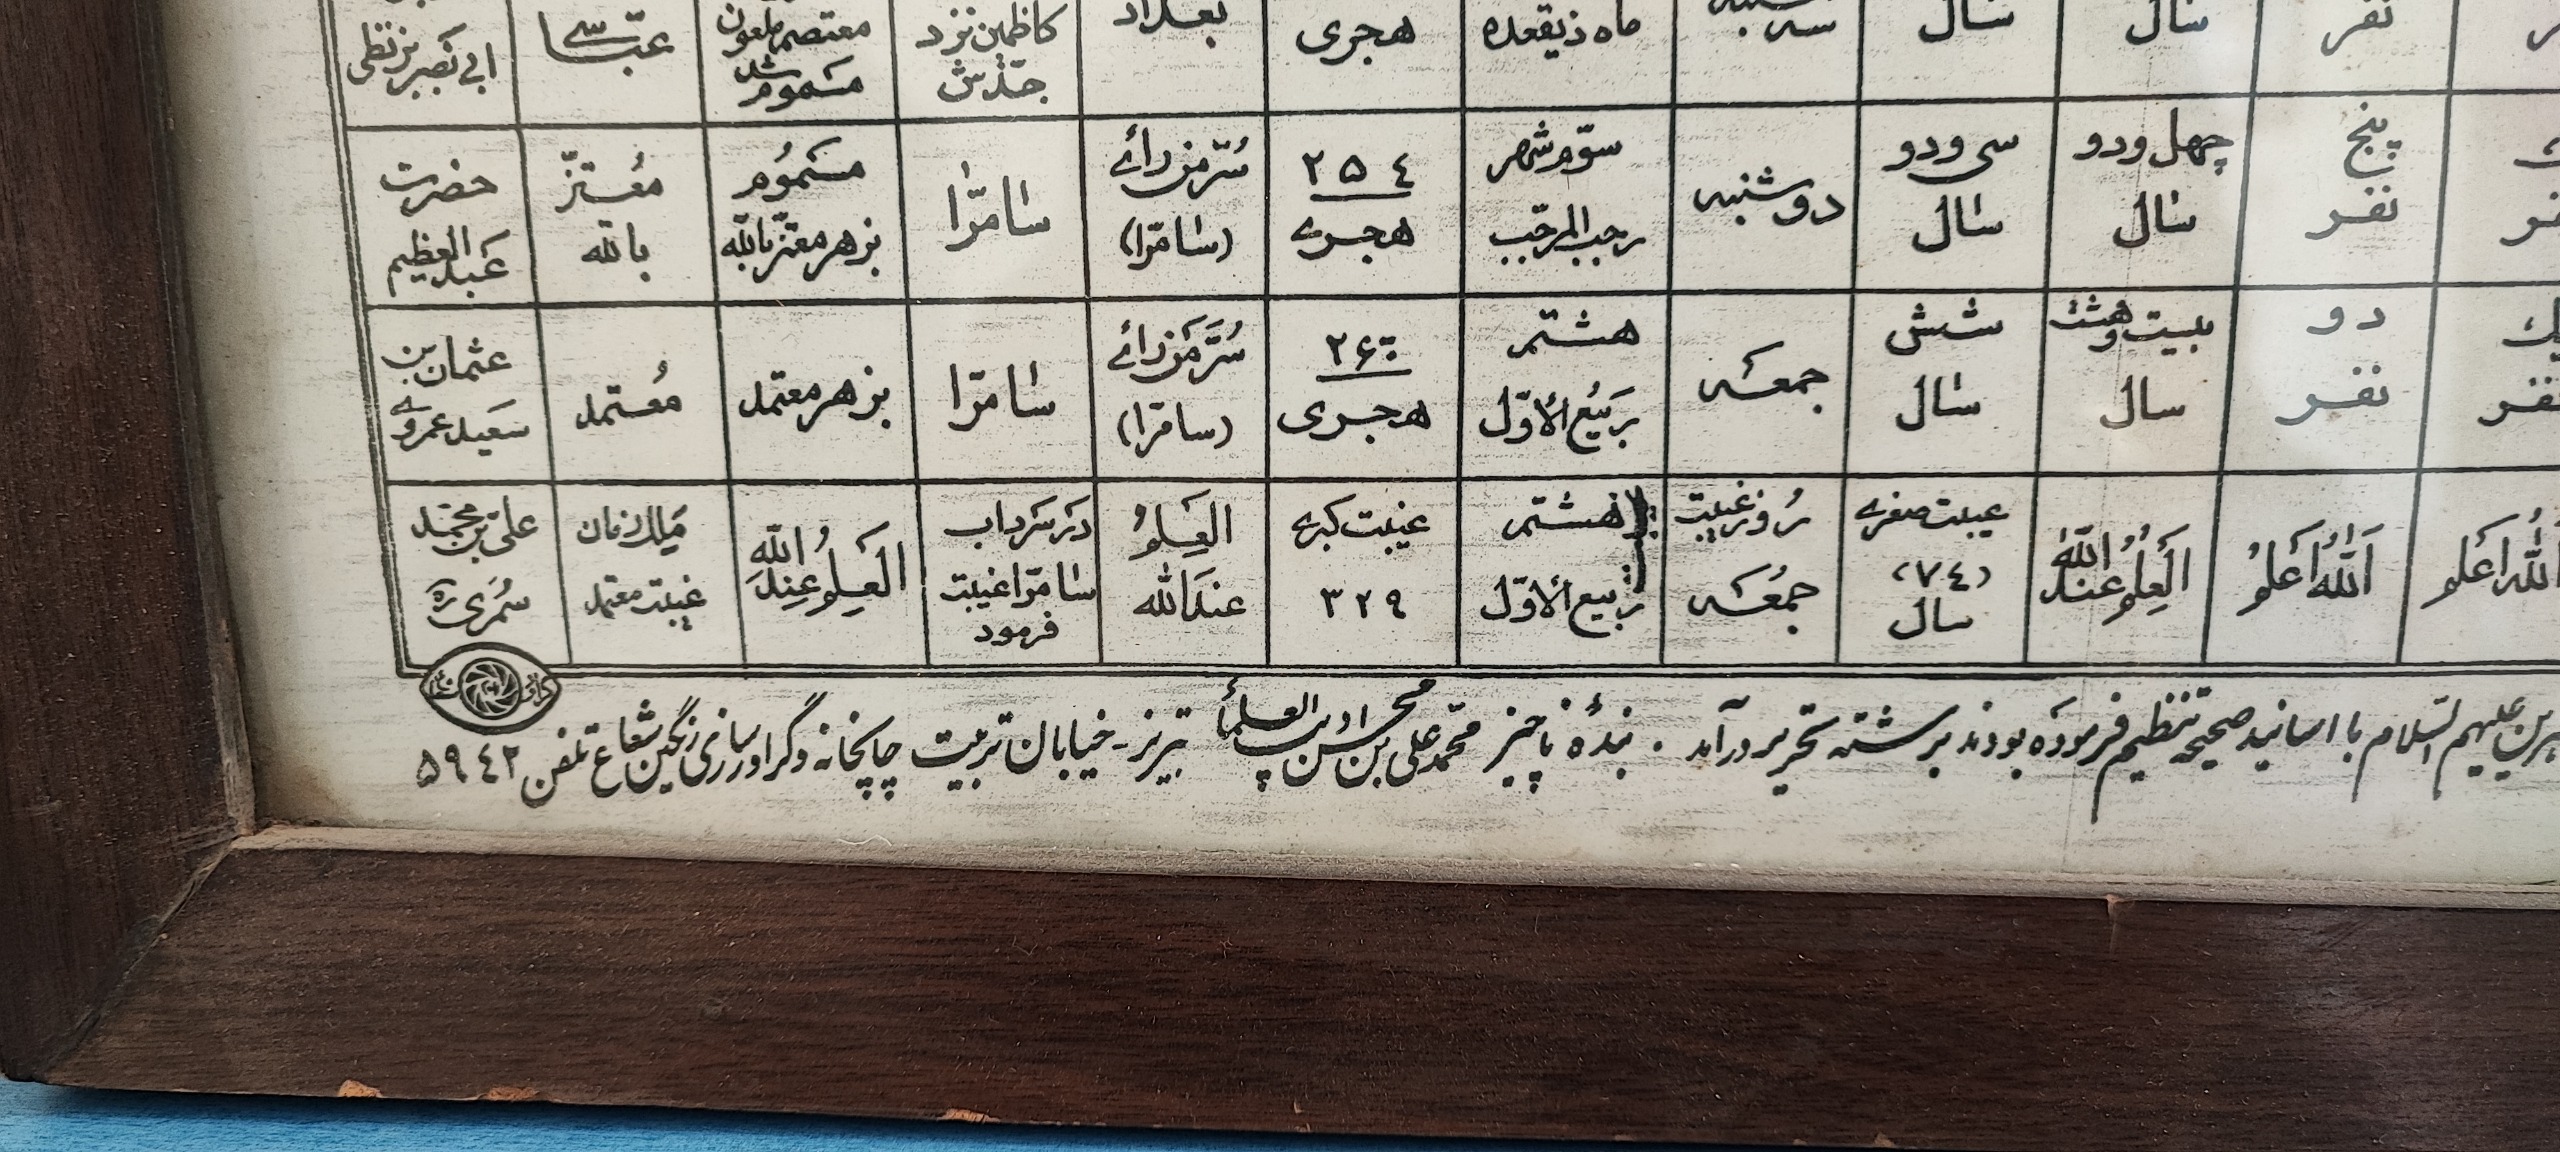 نفر سال سال سه شنبه ماه ذیقعده هجری بغداد کاظمین نزد جدش معتصم ملعون مسموم شد عباسی ابی نصیر بزنطی
پنج نفر چهل و دو سال سی و دو سال دوشنبه سوم شهر رجب المرجب ۲۵٤ هجری سُرَّ مَن رَأی (سامرّا) سامرّا مسموم بزهر معتز بالله مُعتزّ بالله حضرت عبدالعظیم
یک نفر دو نفر بیست و هشت سال شش سال جمعه هشتم ربیع الاوّل ۲۶۰ هجری سُرَّ مَن رَأی (سامرّا) سامرّا بزهر معتمد مُعتمد عثمان بن سعید عمروی
اللهُ اَعلَم اَللهُ اَعلَم اَلعِلمُ عِندَ اللهِ غیبت صغری (۷٤) سال روز غیبت جمعه هشتم ربیع الاوّل غیبت کبری ۳۲۹ العِلمُ عندَ الله در سرداب سامرّا غیبت فرمود اَلعِلمُ عِندَ اللهِ زمان غیبت معتمد علی بن محمّد سَمُری ره
علیهم السّلام با اسانید صحیحه تنظیم فرموده بودند برشته تحریر درآمد . بندهٔ ناچیز محمّد علی بن محسن ادیب العلماء تبریز - خیابان تربیت چاپخانه و گراورسازی رنگین شعاع تلفن ۵۹٤۲